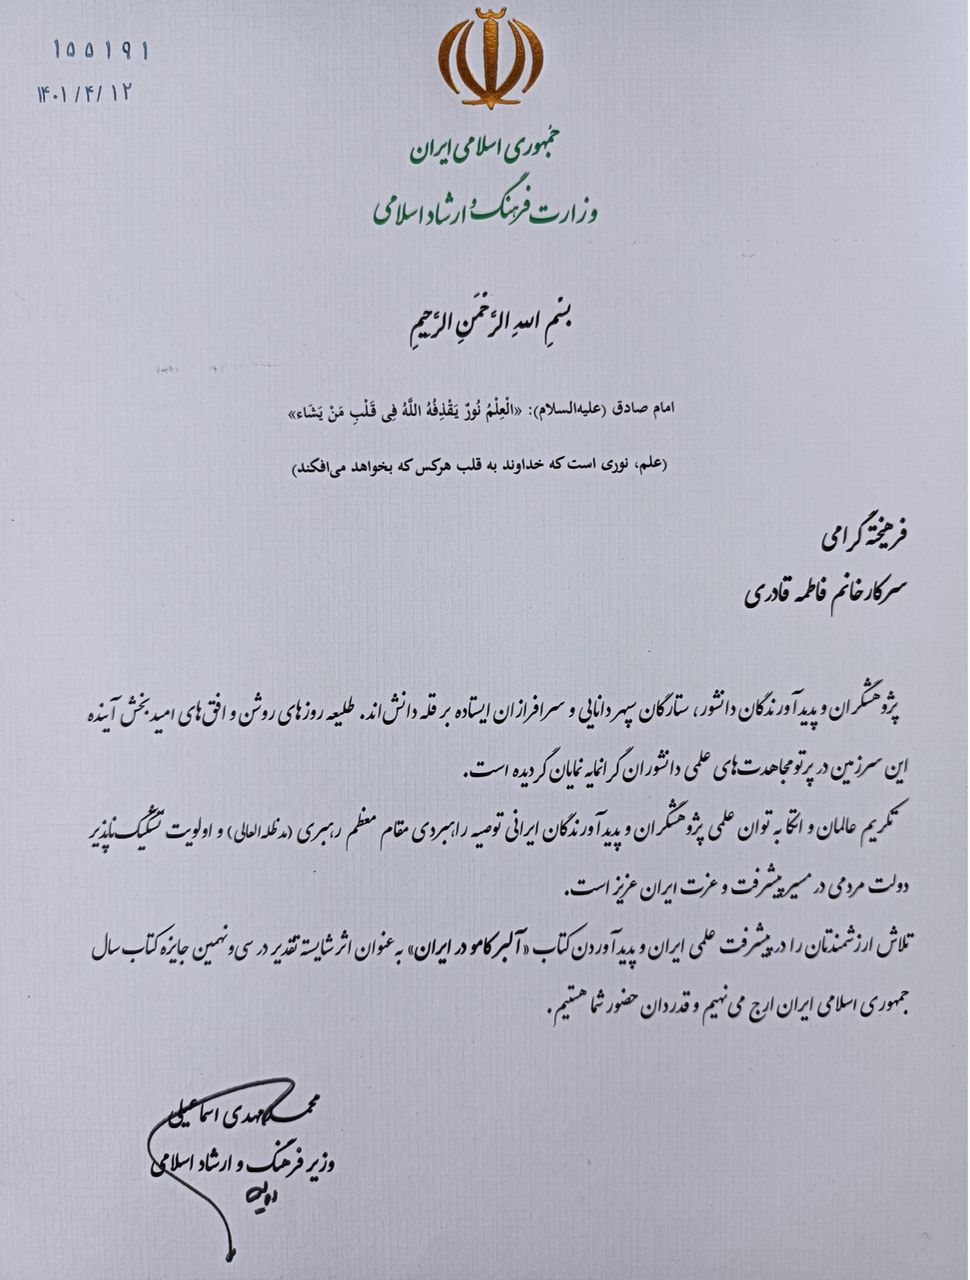 ۱۵۵۱۹۱
۱۴۰۱/۴/۱۲
جمهوری اسلامی ایران
وزارت فرهنگ و ارشاد اسلامی
بِسْمِ اللهِ الرَّحْمَنِ الرَّحِیمِ
امام صادق (علیه‌السلام): «الْعِلْمُ نُورٌ یَقْذِفُهُ اللَّهُ فِی قَلْبِ مَنْ یَشَاء»
(علم، نوری است که خداوند به قلب هرکس که بخواهد می‌افکند)
فرهیختهٔ گرامی
سرکار خانم فاطمه قادری
پژوهشگران و پدیدآورندگان دانشور، ستارگان سپهر دانایی و سرافرازان ایستاده بر قله دانش‌اند. طلیعه روزهای روشن و افق‌های امیدبخش آینده
این سرزمین در پرتو مجاهدت‌های علمی دانشوران گرانمایه نمایان گردیده است.
تکریم عالمان و اتکا به توان علمی پژوهشگران و پدیدآورندگان ایرانی توصیه راهبردی مقام معظم رهبری (مدظله‌العالی) و اولویت تشکیک‌ناپذیر
دولت مردمی در مسیر پیشرفت و عزت ایران عزیز است.
تلاش ارزشمندتان را در پیشرفت علمی ایران و پدیدآوردن کتاب «آلبر کامو در ایران» به‌عنوان اثر شایسته تقدیر در سی‌ونهمین جایزه کتاب سال
جمهوری اسلامی ایران ارج می‌نهیم و قدردان حضور شما هستیم.
محمدمهدی اسماعیلی
وزیر فرهنگ و ارشاد اسلامی